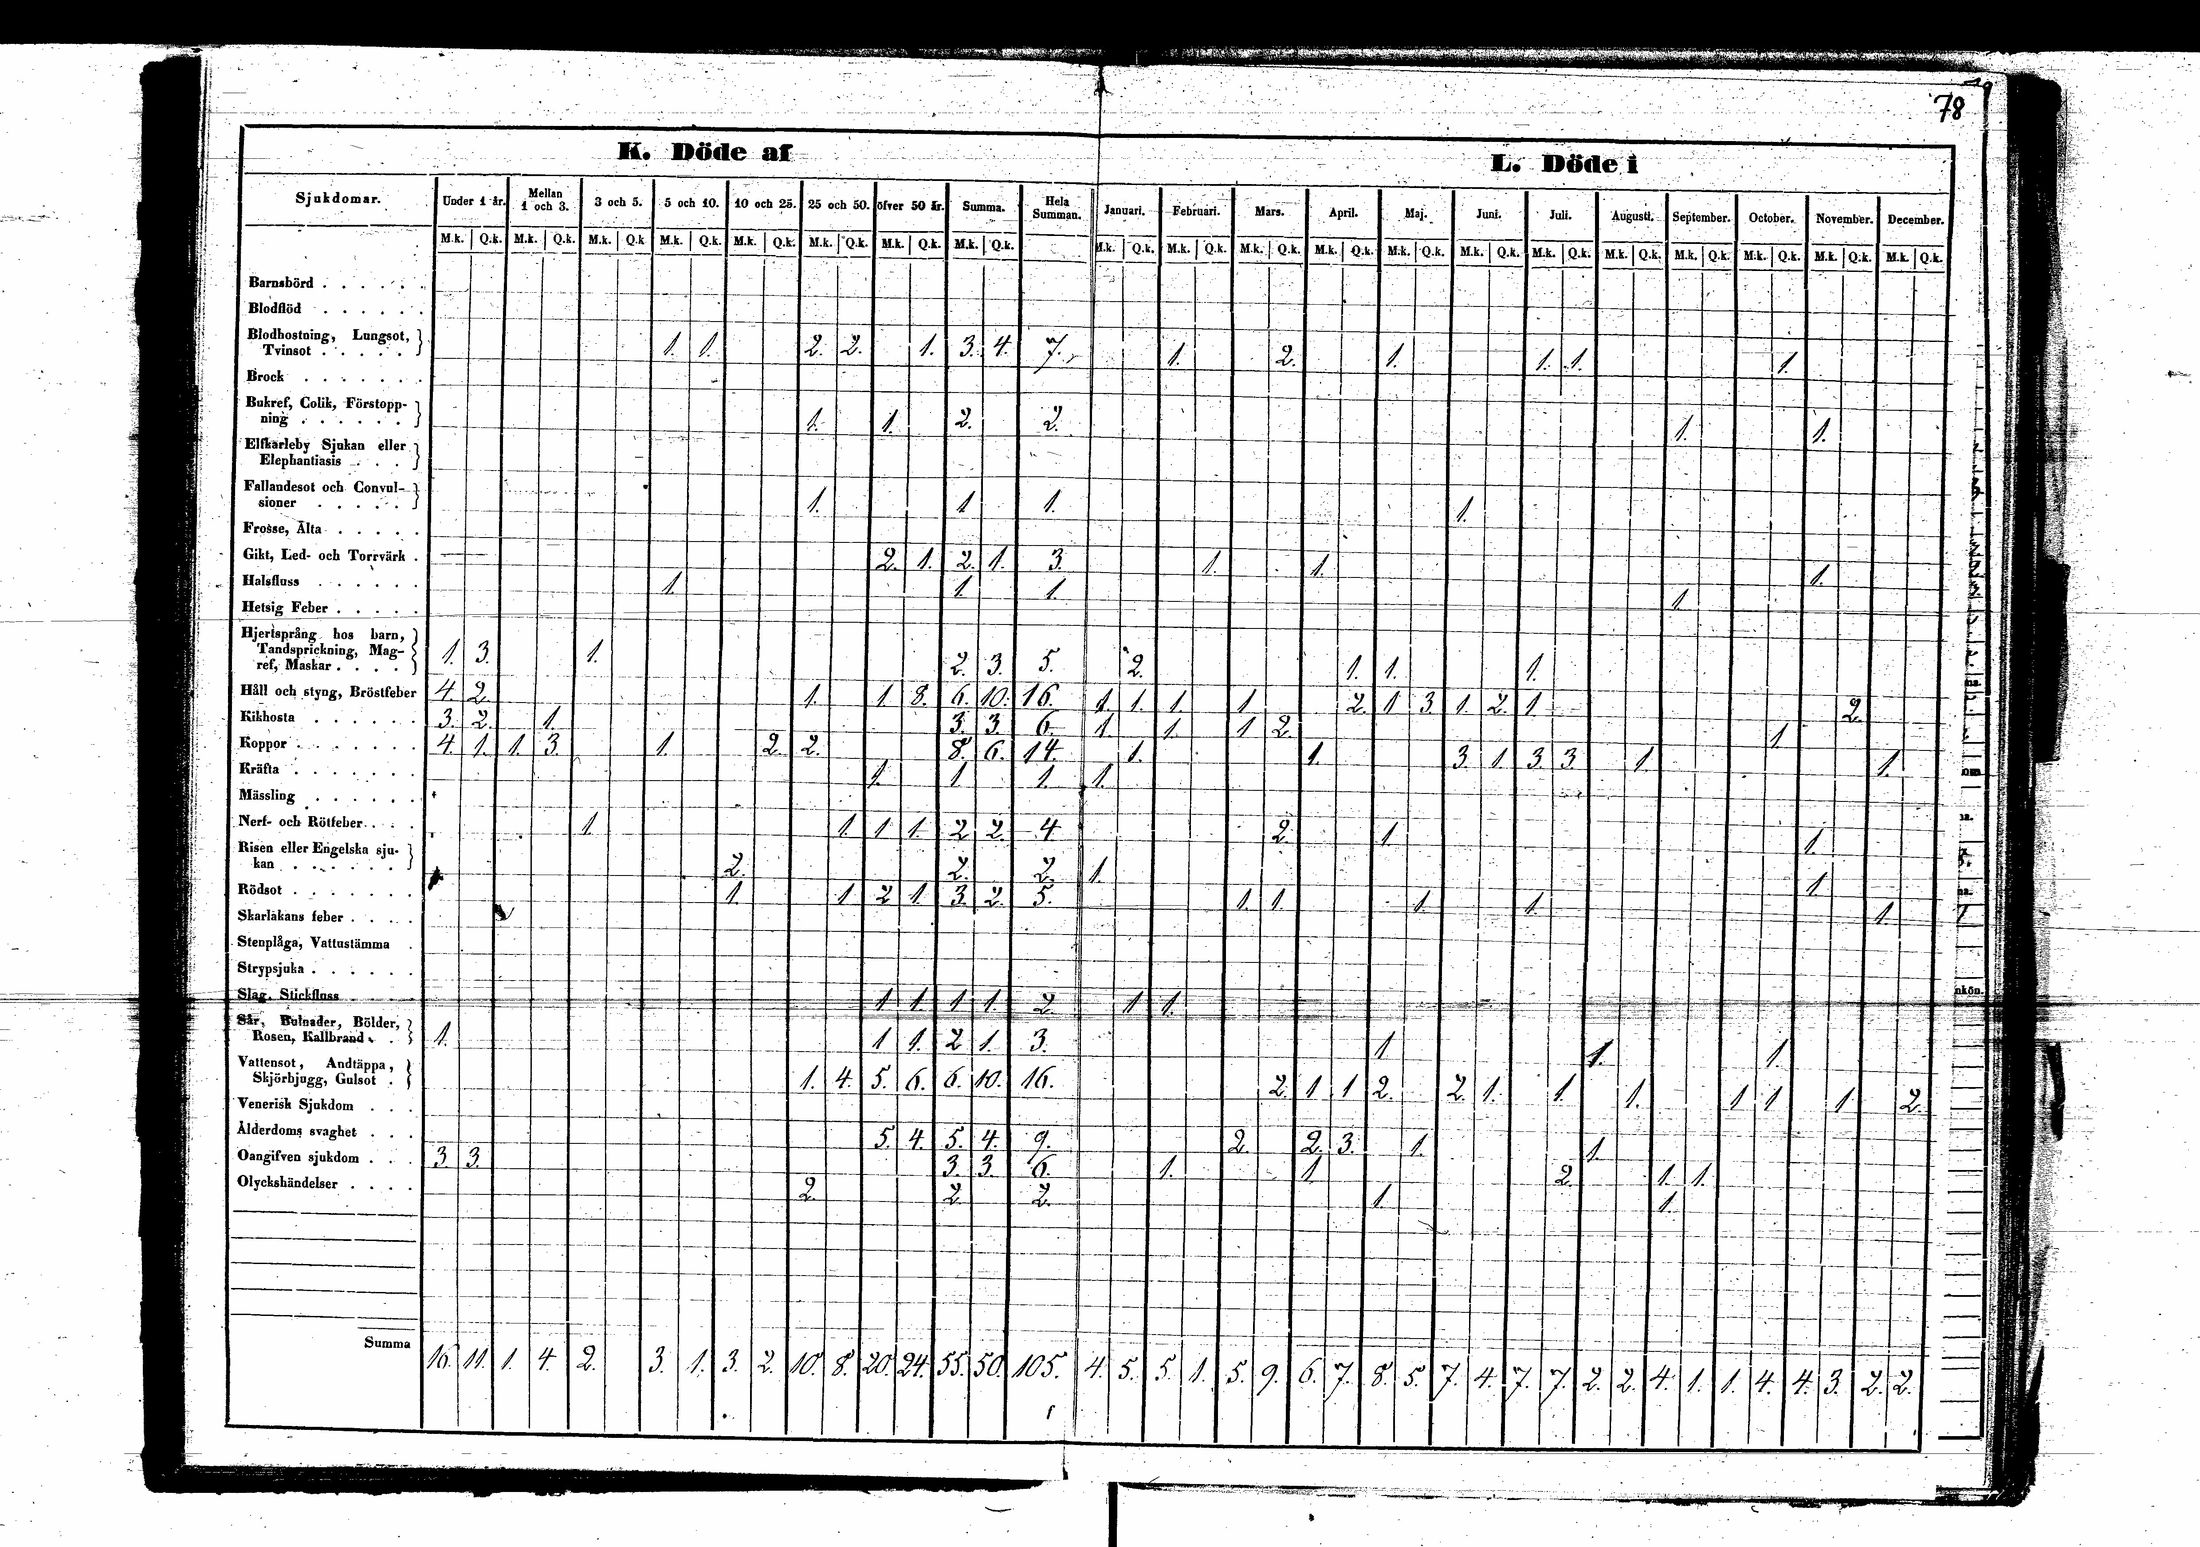 78
K. Döde af L. Döde i
Sjukdomar. Under 1 år. Mellan 1 och 3. 3 och 5. 5 och 10. 10 och 25. 25 och 50. öfver 50 år. Summa. Hela Summan. Januari. Februari. Mars. April. Maj. Juni. Juli. Augusti. September. October. November. December.
M.k. Q.k. M.k. Q.k. M.k. Q.k M.k. Q.k. M.k. Q.k. M.k. Q.k. M.k. Q.k. M.k. Q.k. M.k. Q.k. M.k. Q.k. M.k. Q.k. M.k. Q.k. M.k. Q.k. M.k. Q.k. M.k. Q.k. M.k. Q.k. M.k. Q.k. M.k. Q.k. M.k. Q.k. M.k. Q.k.
Barnsbörd . . . . . .
Blodflöd . . . . . .
Blodhostning, Lungsot,
Tvinsot . . . . . 1. 1. 2. 2. 1. 3. 4. 7. 1. 2. 1. 1. 1. 1.
Brock . . . . . . .
Bukref, Colik, Förstopp-
ning . . . . . . 1. 1. 2. 2. 1. 1.
Elfkarleby Sjukan eller
Elephantiasis . . .
Fallandesot och Convul-
sioner . . . . . 1. 1 1. 1.
Frosse, Älta . . . . .
Gikt, Led- och Torrvärk . 2. 1. 2. 1. 3. 1. 1. 1.
Halsfluss . . . . . . 1. 1. 1. 1.
Hetsig Feber . . . . .
Hjertsprång hos barn,
Tandsprickning, Mag-
ref, Maskar . . . . 1. 3. 1. 2. 3. 5. 2. 1. 1. 1.
Håll och styng, Bröstfeber 4. 2. 1. 1 8. 6. 10. 16. 1. 1. 1. 1 2. 1 3. 1. 2. 1 2.
Kikhosta . . . . . . 3. 2. 1. 3. 3. 6. 1. 1. 1 2. 1.
Koppor . . . . . . . 4. 1. 1. 3. 1. 2. 2. 8. 6. 14. 1. 1. 3. 1. 3. 3. 1. 1.
Kräfta . . . . . . . 1. 1 1. 1.
Mässling . . . . . .
Nerf- och Rötfeber . . . 1. 1. 1 1. 2 2. 4 2. 1. 1.
Risen eller Engelska sju-
kan . . . . . . 2. 2. 2. 1. 1.
Rödsot . . . . . . . 1. 1 2 1. 3. 2. 5. 1. 1. 1. 1. 1.
Skarlakans feber . . . .
Stenplåga, Vattustämma .
Strypsjuka . . . . . .
Slag, Stickfluss 1 1. 1 1. 2. 1 1.
Sår, Bulnader, Bölder,
Rosen, Kallbrand . . 1. 1 1. 2 1. 3. 1 1. 1.
Vattensot, Andtäppa,
Skjörbjugg, Gulsot . 1. 4. 5. 6. 6. 10. 16. 2. 1 1 2. 2. 1. 1. 1. 1 1. 1. 2.
Venerisk Sjukdom . . .
Ålderdoms svaghet . . . 5. 4. 5. 4. 9. 2. 2. 3. 1. 1.
Oangifven sjukdom . . . 3. 3. 3. 3. 6. 1. 1. 2. 1. 1.
Olyckshändelser . . . . 2. 2. 2. 1. 1.
Summa 16. 11. 1. 4. 2. 3. 1. 3. 2. 10. 8. 20. 24. 55. 50. 105. 4. 5. 5. 1. 5. 9. 6. 7. 8. 5. 7. 4. 7. 7. 2. 2. 4. 1. 1. 4. 4. 3. 2. 2.